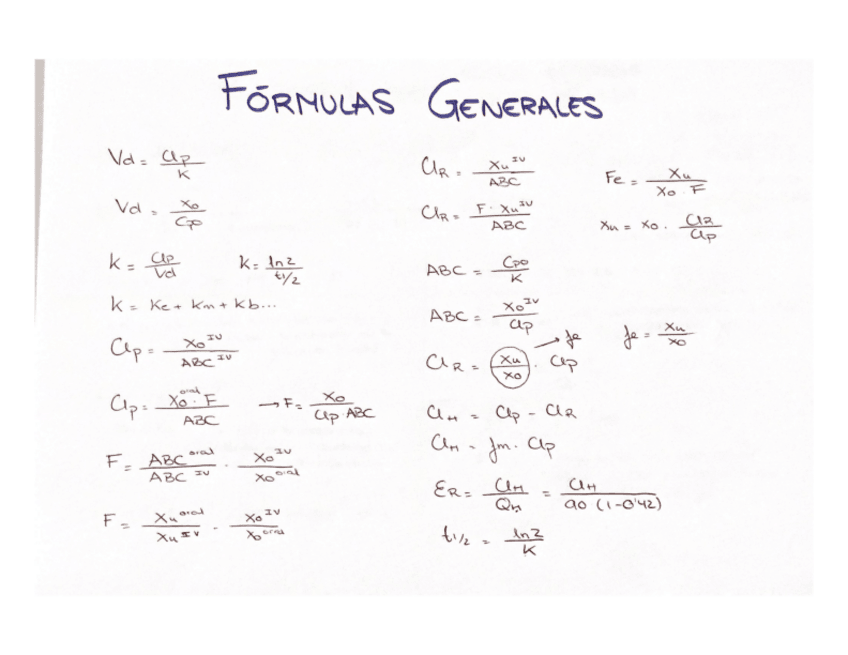 FÓRMULAS GENERALES
Vd = Clp / K
Vd = X₀ / Cp₀
k = Clp / Vd
k = ln 2 / t1/2
k = Ke + Km + Kb...
Clp = X₀ᴵⱽ / ABCᴵⱽ
Clp = X₀ᵒʳᵃˡ · F / ABC → F = X₀ / Clp · ABC
F = ABCᵒʳᵃˡ / ABCᴵⱽ · X₀ᴵⱽ / X₀ᵒʳᵃˡ
F = Xuᵒʳᵃˡ / Xuᴵⱽ · X₀ᴵⱽ / X₀ᵒʳᵃˡ
ClR = Xuᴵⱽ / ABC
ClR = F · Xuᴵⱽ / ABC
ABC = Cp₀ / K
ABC = X₀ᴵⱽ / Clp
ClR = Xu / X₀ · Clp → fe
fe = Xu / X₀
ClH = Clp - ClR
ClH = fm · Clp
ER = ClH / QH = ClH / 90 (1-0'42)
t1/2 = ln 2 / K
Fe = Xu / X₀ · F
Xu = X₀ · ClR / Clp